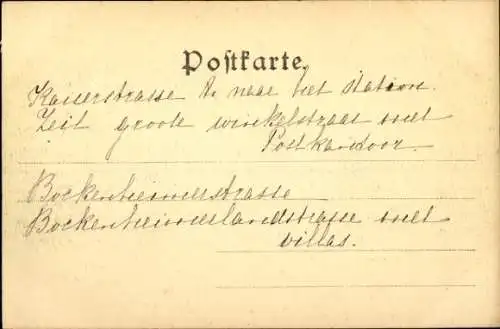 Postkarte.
Kaiserstrasse n naar het station.
Zeil groote winkelstraat met
Postkantoor.
Bockenheimerstrasse
Bockenheimerlandstrasse met
villas.